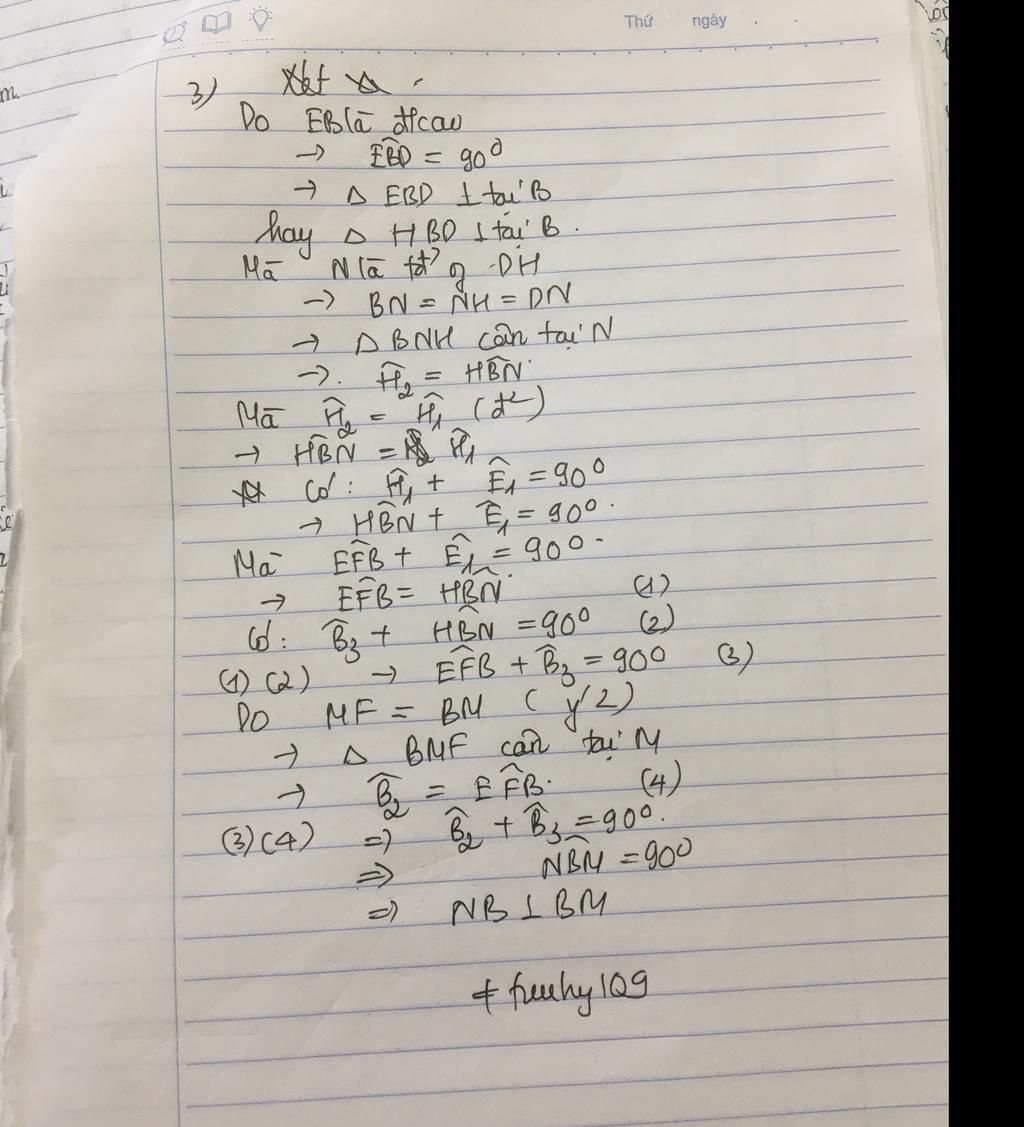 Thứ ngày . .
3) Xét △ .
Do EB là đcao
→ EB̂D = 90⁰
→ △ EBD ⊥ tại B
hay △ HBD ⊥ tại B.
Mà N là tđ' g DH
→ BN = NH = DN
→ △ BNH cân tại N
→. Ĥ₂ = HB̂N
Mà Ĥ₂ = Ĥ₁ (đ²)
→ HB̂N = Ĥ₁
Có: Ĥ₁ + Ê₁ = 90⁰
→ HB̂N + Ê₁ = 90⁰.
Mà EF̂B + Ê₁ = 90⁰.
→ EF̂B = HB̂N (1)
Có: B̂₃ + HB̂N = 90⁰ (2)
(1) (2) → EF̂B + B̂₃ = 90⁰ (3)
Do MF = BM ( ý 2)
→ △ BMF cân tại M
→ B̂₂ = EF̂B. (4)
(3) (4) => B̂₂ + B̂₃ = 90⁰.
=> NB̂M = 90⁰
=> NB ⊥ BM